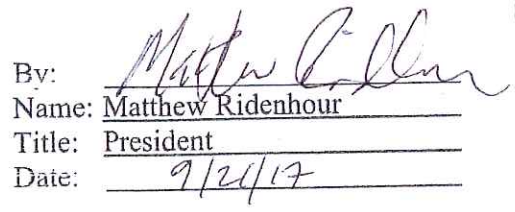 By: Matthew Ridenhour
Name: Matthew Ridenhour
Title: President
Date: 9/21/17